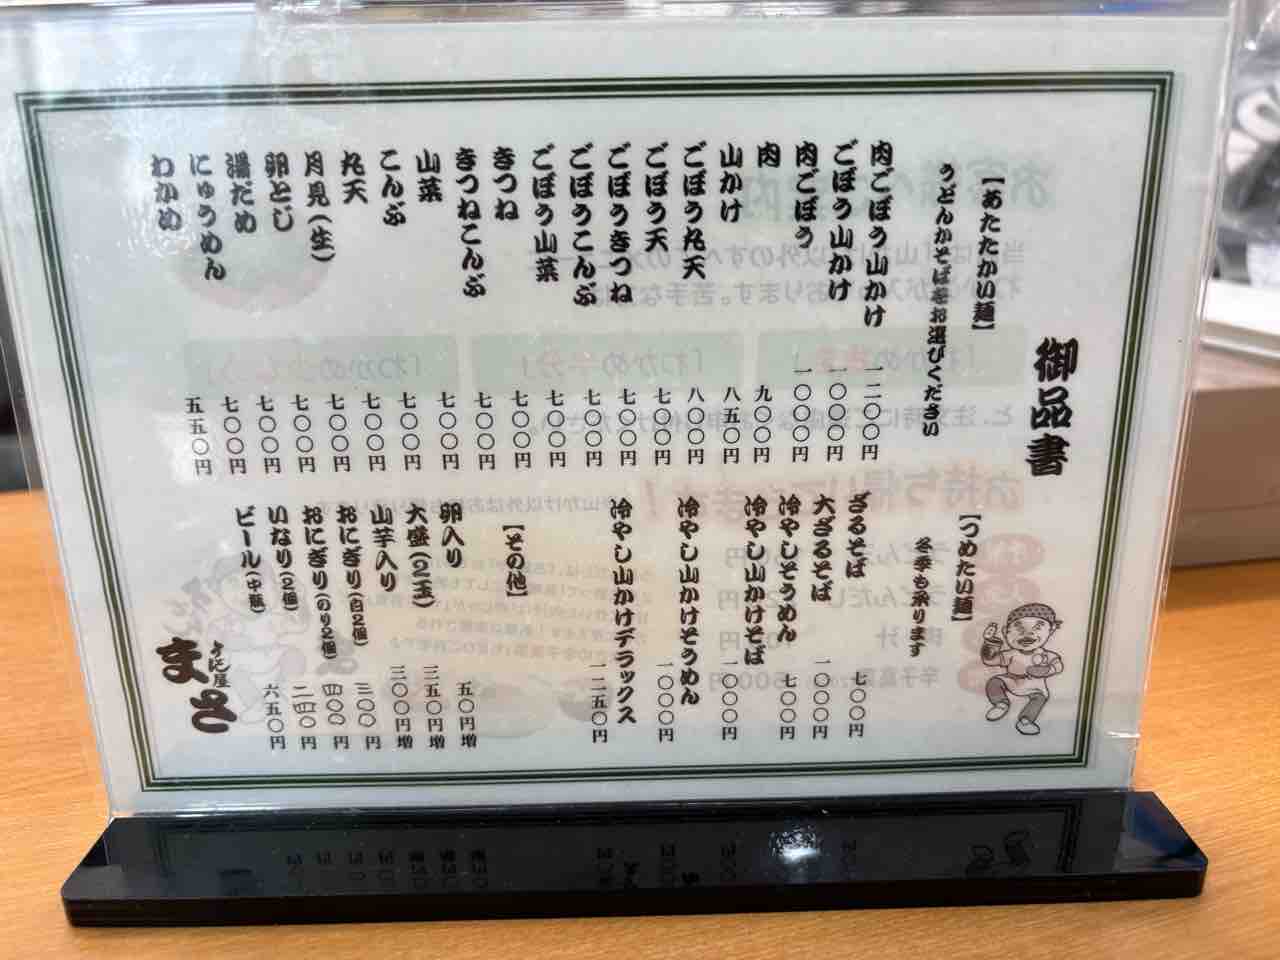 御品書
【あたたかい麺】
うどんかそばをお選びください
肉ごぼう山かけ 一二〇〇円
ごぼう山かけ 一〇〇〇円
肉ごぼう 一〇〇〇円
肉 九〇〇円
山かけ 八五〇円
ごぼう丸天 八〇〇円
ごぼう天 七〇〇円
ごぼうきつね 七〇〇円
ごぼうこんぶ 七〇〇円
ごぼう山菜 七〇〇円
きつね 七〇〇円
きつねこんぶ 七〇〇円
山菜 七〇〇円
こんぶ 七〇〇円
丸天 七〇〇円
月見(生) 七〇〇円
卵とじ 七〇〇円
湯だめ 七〇〇円
にゅうめん 七〇〇円
わかめ 五五〇円
【つめたい麺】
冬季も承ります
ざるそば 七〇〇円
大ざるそば 一〇〇〇円
冷やしそうめん 七〇〇円
冷やし山かけそば 一〇〇〇円
冷やし山かけそうめん 一〇〇〇円
冷やし山かけデラックス 一二五〇円
【その他】
卵入り 五〇円増
大盛(2玉) 三五〇円増
山芋入り 三〇〇円増
おにぎり(白2個) 三〇〇円
おにぎり(のり2個) 四〇〇円
いなり(2個) 二四〇円
ビール(中瓶) 六五〇円
まさ